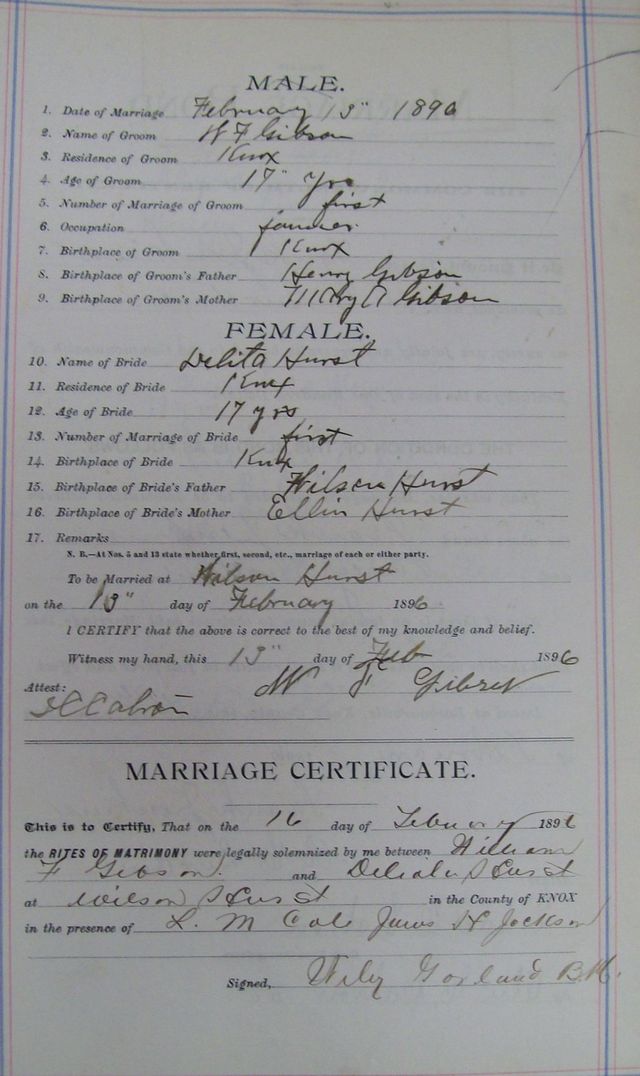 MALE.
1. Date of Marriage February 13" 1896
2. Name of Groom W F Gibson
3. Residence of Groom Knox
4. Age of Groom 17" yrs
5. Number of Marriage of Groom first
6. Occupation farmer
7. Birthplace of Groom Knox
8. Birthplace of Groom's Father Henry Gibson
9. Birthplace of Groom's Mother Mary A Gibson
FEMALE.
10. Name of Bride Delita Hurst
11. Residence of Bride Knox
12. Age of Bride 17 yrs
13. Number of Marriage of Bride first
14. Birthplace of Bride Knox
15. Birthplace of Bride's Father Wilson Hurst
16. Birthplace of Bride's Mother Ellin Hurst
17. Remarks
N. B.—At Nos. 5 and 13 state whether first, second, etc., marriage of each or either party.
To be Married at Wilson Hurst
on the 13" day of February 1896.
I CERTIFY that the above is correct to the best of my knowledge and belief.
Witness my hand, this 13" day of Feb 1896
Attest: W F
MARRIAGE CERTIFICATE.
This is to Certify, That on the 16 day of February 1896
the RITES OF MATRIMONY were legally solemnized by me between William
F Gibson and Hurst
at Wilson Hurst in the County of KNOX
in the presence of L. M Cole James H Jackson
Signed, Wily Gorland B.M.